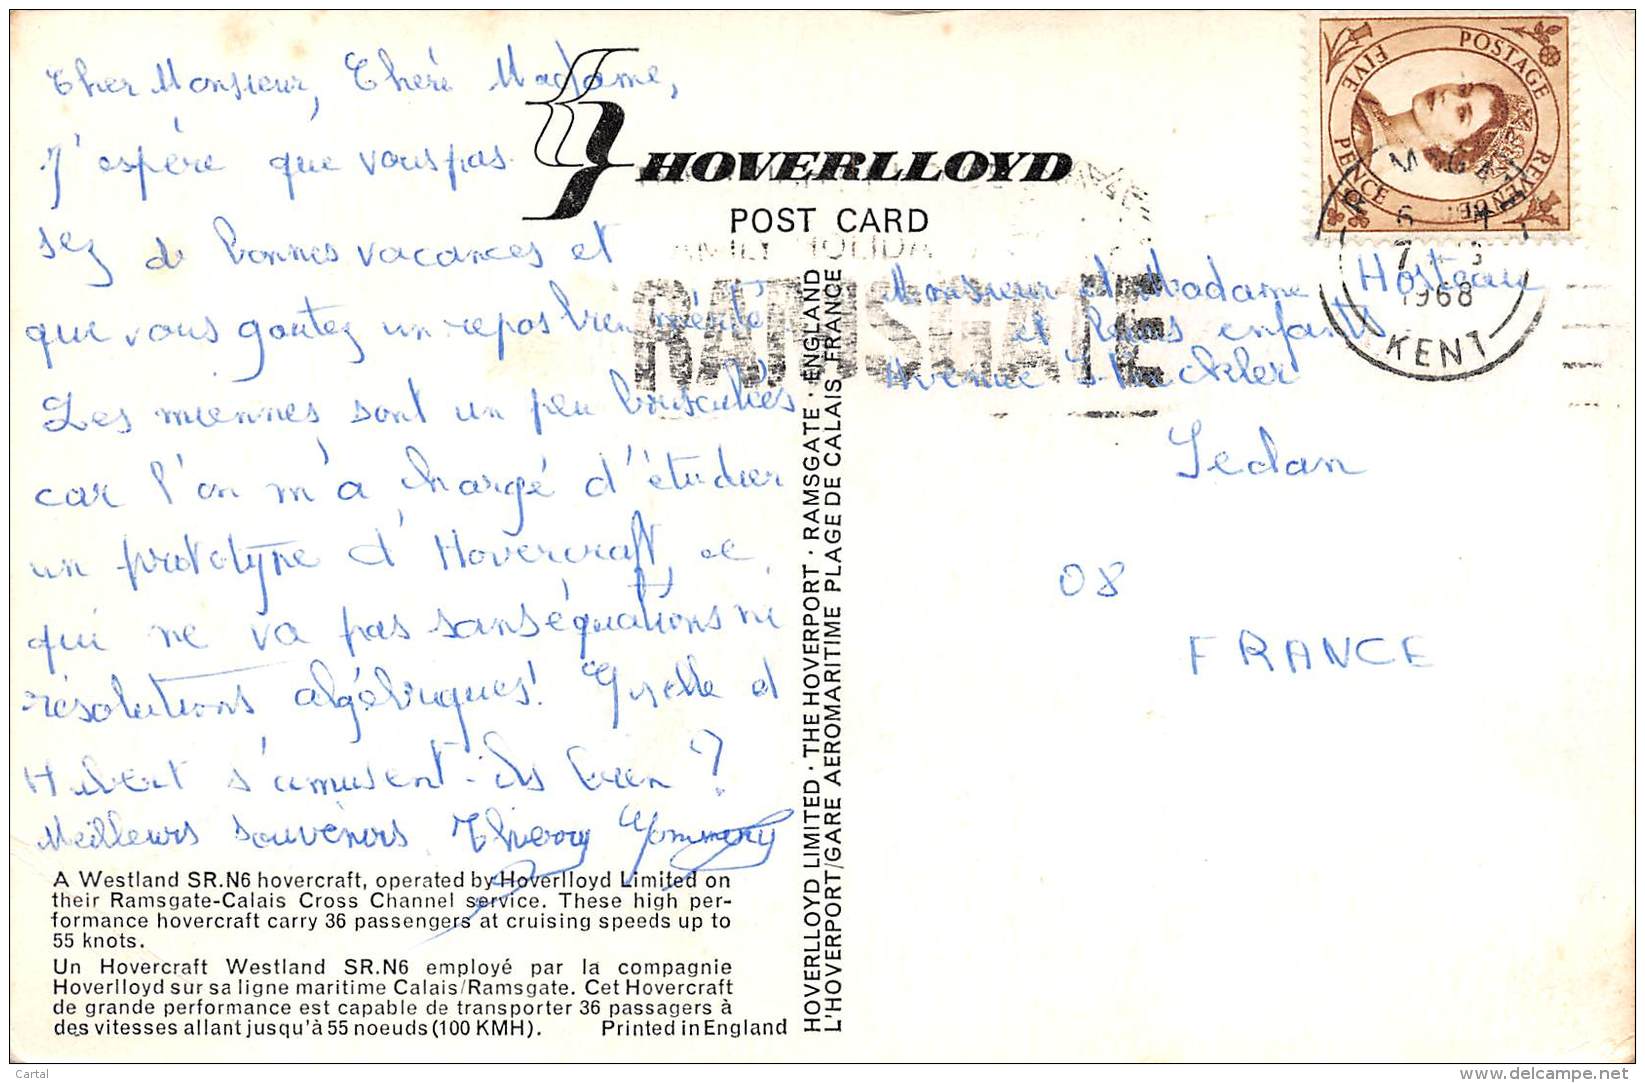 Cher Monsieur, Cheré Madame,
J'espère que vous pas
sez de bonnes vacances et
que vous goutez un repos bien mérité
Les miennes sont un peu bousculées
car l'on m'a chargé d'étudier
un prototype d'Hovercraft, ce
qui ne va pas sans équations ni
résolutions algébriques! Giselle et
Hubert s'amusent-ils bien?
Meilleurs souvenirs Thierry
A Westland SR.N6 hovercraft, operated by Hoverlloyd Limited on
their Ramsgate-Calais Cross Channel service. These high per-
formance hovercraft carry 36 passengers at cruising speeds up to
55 knots.
Un Hovercraft Westland SR.N6 employé par la compagnie
Hoverlloyd sur sa ligne maritime Calais/Ramsgate. Cet Hovercraft
de grande performance est capable de transporter 36 passagers à
des vitesses allant jusqu'à 55 noeuds (100 KMH). Printed in England
HOVERLLOYD
POST CARD
HOVERLLOYD LIMITED · THE HOVERPORT · RAMSGATE · ENGLAND
L'HOVERPORT/GARE AEROMARITIME PLAGE DE CALAIS FRANCE
RAMSGATE
POSTAGE REVENUE
FIVE PENCE
1968
KENT
Monsieur et Madame Hosteau
et leurs enfants
Avenue
Sedan
08
FRANCE
Cartal
www.delcampe.net